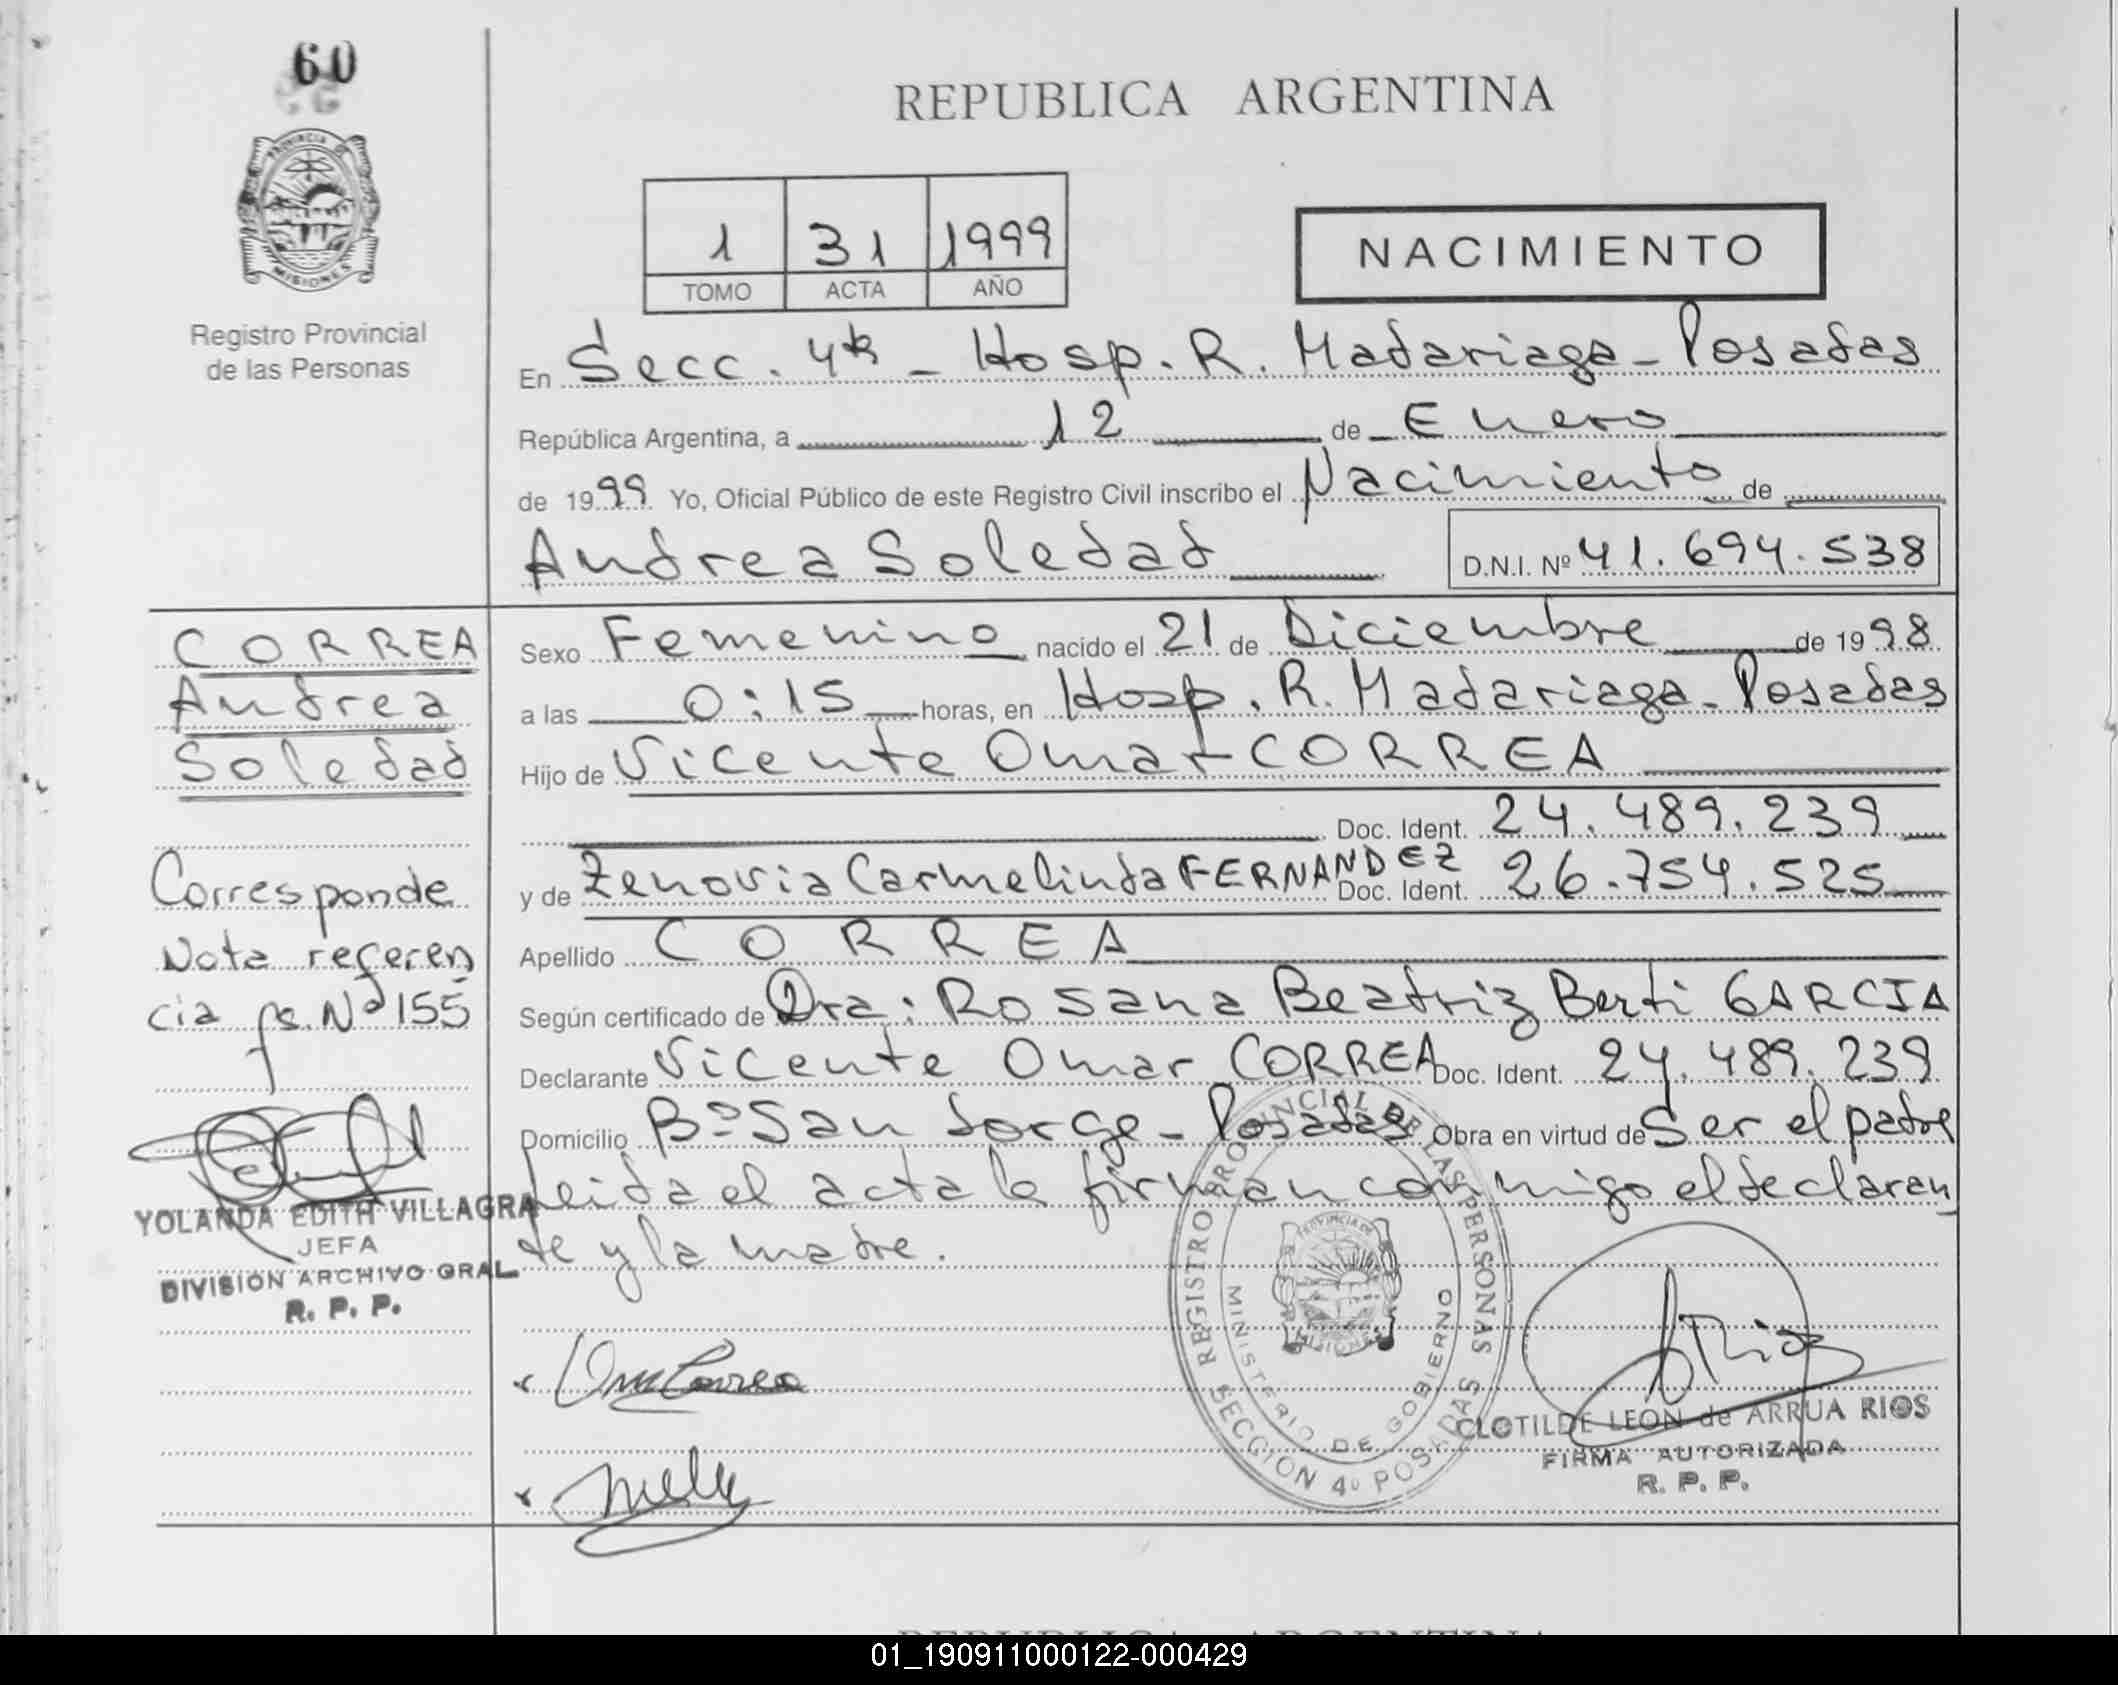 60
REPUBLICA ARGENTINA
PROVINCIA DE
MISIONES
Registro Provincial
de las Personas
1 31 1999
TOMO ACTA AÑO
NACIMIENTO
En Secc. 4ta - Hosp. R. Madariaga - Posadas
República Argentina, a 12 de Enero
de 1999 Yo, Oficial Público de este Registro Civil inscribo el Nacimiento de
Andrea Soledad D.N.I. Nº 41.694.538
CORREA
Andrea
Soledad
Corresponde
Nota referen
cia fs. Nº 155
YOLANDA EDITH VILLAGRA
JEFA
DIVISION ARCHIVO GRAL.
R. P. P.
Sexo Femenino nacido el 21 de Diciembre de 1998
a las 0:15 horas, en Hosp. R. Madariaga - Posadas
Hijo de Vicente Omar CORREA
Doc. Ident. 24.489.239
y de Zenovia Carmelinda FERNANDEZ Doc. Ident. 26.754.525
Apellido CORREA
Según certificado de Dra: Rosana Beatriz Berti GARCIA
Declarante Vicente Omar CORREA Doc. Ident. 24.489.239
Domicilio Bº San Jorge - Posadas Obra en virtud de Ser el padre
Leida el acta la firman conmigo el declaran
te y la madre.
REGISTRO PROVINCIAL DE LAS PERSONAS
MINISTERIO DE GOBIERNO
SECCION 4º POSADAS
PROVINCIA DE
MISIONES
Correa
Rios
CLOTILDE LEON de ARRUA RIOS
FIRMA AUTORIZADA
R. P. P.
REPUBLICA ARGENTINA
01_190911000122-000429